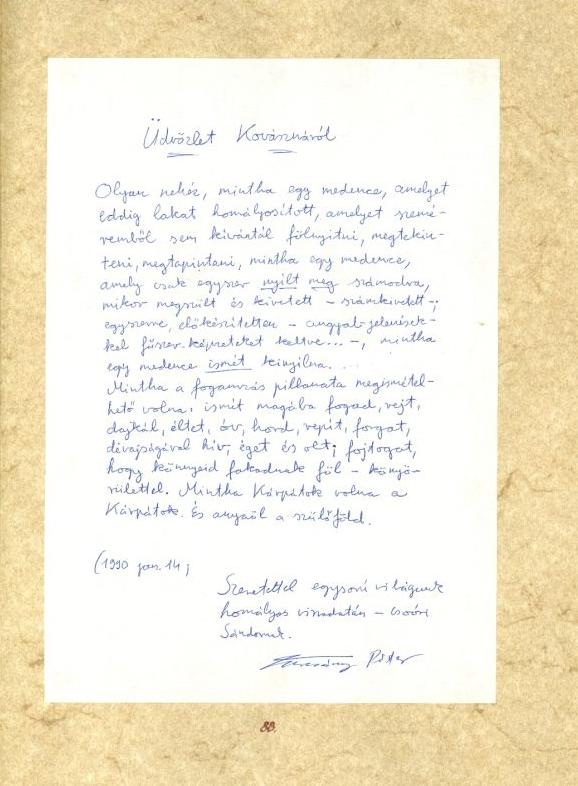 Üdvözlet Kovásznáról
Olyan nehéz, mintha egy medence, amelyet
eddig lakat homályosított, amelyet szemé-
remből sem kívántál fölnyitni, megtekin-
teni, megtapintani, mintha egy medence,
amely csak egyszer nyílt meg számodra,
mikor megszült és kivetett – számkivetett –;
egyszerre, előkészítetlen – angyal-jelenések-
kel fűszer-képzeteket keltve... –, mintha
egy medence ismét kinyílna...
Mintha a fogamzás pillanata megismétel-
hető volna: ismét magába fogad, rejt,
dajkál, éltet, óv, hord, repít, forgat,
dévajságával hív, éget és olt; fojtogat,
hogy könnyeid fakadnak föl – könyö-
rülettel. Mintha Kárpátok volna a
Kárpátok. És anyaöl a szülőföld.
(1990 jan. 14;
Szeretettel egysorsú világunk
homályos virradatán – Csoóri
Sándornak.
Péter
88.